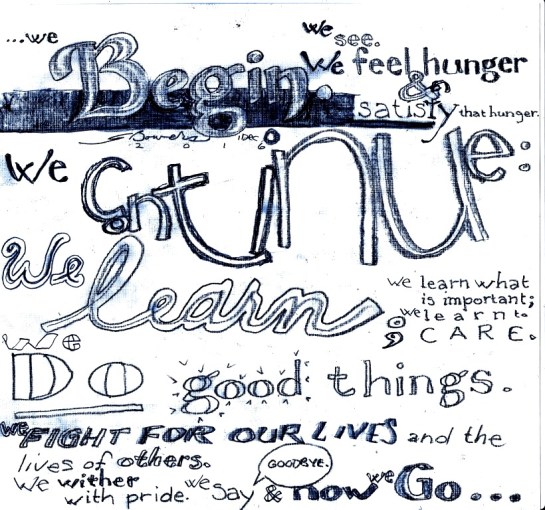 ...we
Begin.
we
see.
We feel hunger
&
satisfy that hunger.
S Bowers 1 Dec
2 0 1 6
We
Continue:
We
learn
we learn what
is important;
we learn to
; CARE.
We
Do good things.
we FIGHT FOR OUR LIVES and the
lives of others.
We wither
with pride.
we say
GOODBYE.
& now we Go...